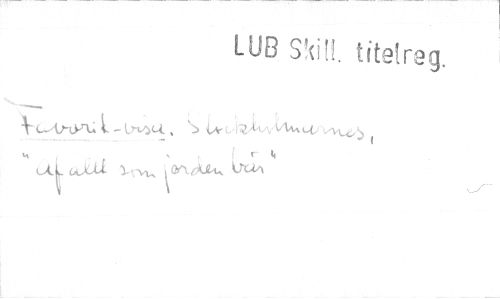 LUB Skill. titelreg.
Favorit-visa. Stockholmarnes,
"Af allt som jorden bär"